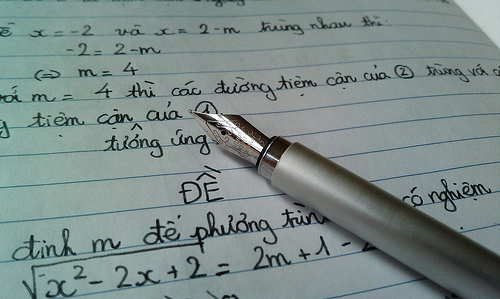 để x = -2 và x = 2-m trùng nhau thì:
-2 = 2-m
⇔ m = 4
với m = 4 thì các đường tiệm cận của ② trùng với
tiệm cận của ①
tương ứng.
ĐỀ
định m để phương trình có nghiệm
√x² - 2x + 2 = 2m + 1 -